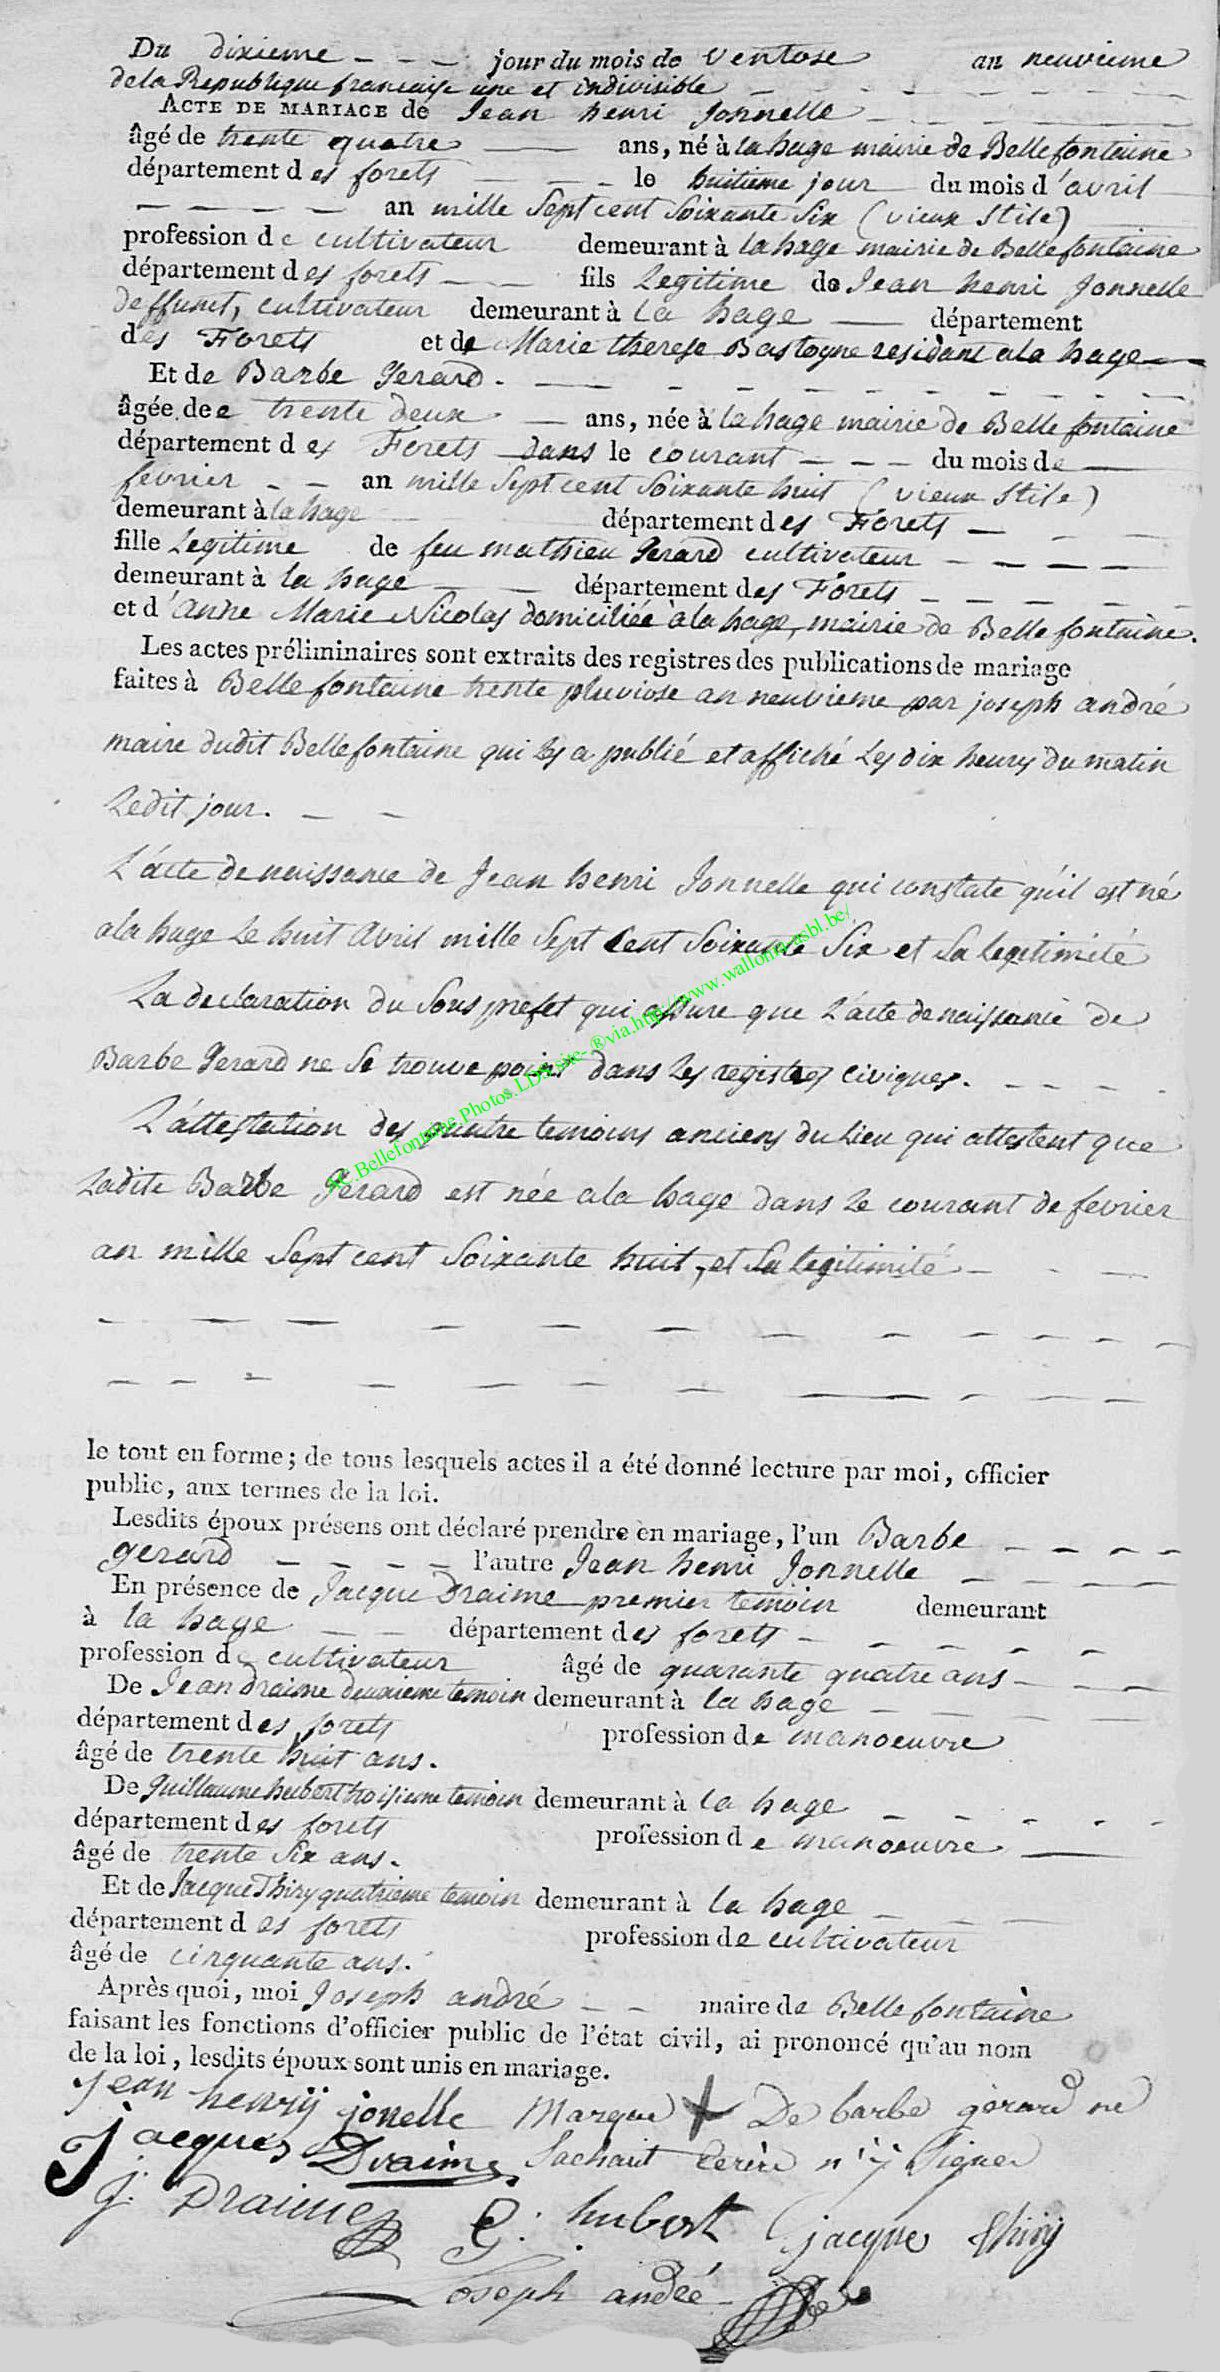 Du dixieme - - - jour du mois de Ventose an neuvieme
de la Republique francaise une et indivisible - - - - - -
ACTE DE MARIAGE de Jean henri Jonnelle - - - -
âgé de trente quatre — ans, né à la hage mairie de Bellefontaine
département des forets — — - le huitieme jour du mois d'avril
— — — — an mille Sept cent Soixante Six (vieux Stile)
profession de cultivateur demeurant à la hage mairie de Bellefontaine
département des forets — — fils Legitime de Jean henri Jonnelle
deffunct, cultivateur demeurant à la hage — département
des Forets et de Marie therese Bastogne residant a la hage —
Et de Barbe Gerard. — — - - - - - - -
âgée de trente deux — ans, née à la hage mairie de Bellefontaine
département des Forets dans le courant - - - du mois de —
fevrier - - an mille Sept cent Soixante huit (vieux Stile)
demeurant à la hage département des Forets — - -
fille Legitime de feu mathieu Gerard cultivateur - - - - -
demeurant à la hage — — département des Forets - - - - - -
et d'Anne Marie Nicolas domiciliée à la hage, mairie de Bellefontaine.
Les actes préliminaires sont extraits des registres des publications de mariage
faites à Bellefontaine trente pluviose an neuvieme par joseph andré
maire dudit Bellefontaine qui les a publié et affiché Les dix heures du matin
Ledit jour. - -
L'acte de naissance de Jean henri Jonnelle qui constate qu'il est né
a la hage Le huit Avril mille Sept Cent Soixante Six et Sa legitimité
La declaration du Sous prefet qui assure que L'acte de naissance de
Barbe Gerard ne Se trouve point dans Les registres civiques. - - - -
L'attestation des quatre temoins anciens du Lieu qui attestent que
Ladite Barbe Gerard est née a la hage dans Le courant de fevrier
an mille Sept cent Soixante huit, et Sa legitimité - - —
AC.Bellefontaine.Photos.LDS site-®via.http//www.wallonia-asbl.be/
le tout en forme; de tous lesquels actes il a été donné lecture par moi, officier
public, aux termes de la loi.
Lesdits époux présens ont déclaré prendre en mariage, l'un Barbe - - - -
gerard - - - - l'autre Jean henri Jonnelle - - - -
En présence de Jacque Draime premier temoin demeurant
à la hage - - département des forets - - - - - -
profession de cultivateur âgé de quarante quatre ans - - -
De Jean Draime deuxieme temoin demeurant à la hage - - - - -
département des forets profession de manoeuvre
âgé de trente huit ans.
De Guillaume hubert troisieme temoin demeurant à la hage - - - - -
département des forets profession de manoeuvre —
âgé de trente Six ans.
Et de Jacque Thiry quatrieme temoin demeurant à la hage - - -
département des forets profession de cultivateur
âgé de cinquante ans.
Après quoi, moi Joseph andré - - maire de Bellefontaine
faisant les fonctions d'officier public de l'état civil, ai prononcé qu'au nom
de la loi, lesdits époux sont unis en mariage.
Jean henrÿ jonelle Marque + De barbe gerard ne
Jacques Draime Sachant Ecrire n'ÿ Signer
J. Draime G. hubert jacque thiry
Joseph andré